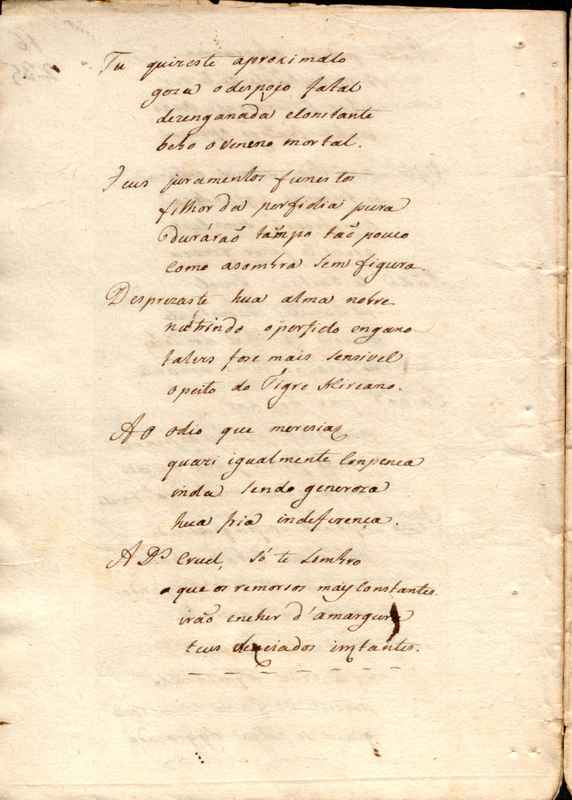 Tu quizeste aproximalo
goza o despojo fatal
dezenganada e constante
bebo o veneno mortal.
Teus juramentos funestos
filhos da perfidia pura
durárão tãmpo tão pouco
como asombra sem figura.
Desprezaste hua alma nobre
nutrindo o perfido engano
talves fose mais sensivel
o peito do Tigre Hircano.
Ao odio que meresias
quazi igualmente conpenca
inda sendo generoza
hua pia indeferença.
A Ds. Cruel, só te Lembro
que os remorsos mays constantes
irão encher d'amargura
teus instantes.